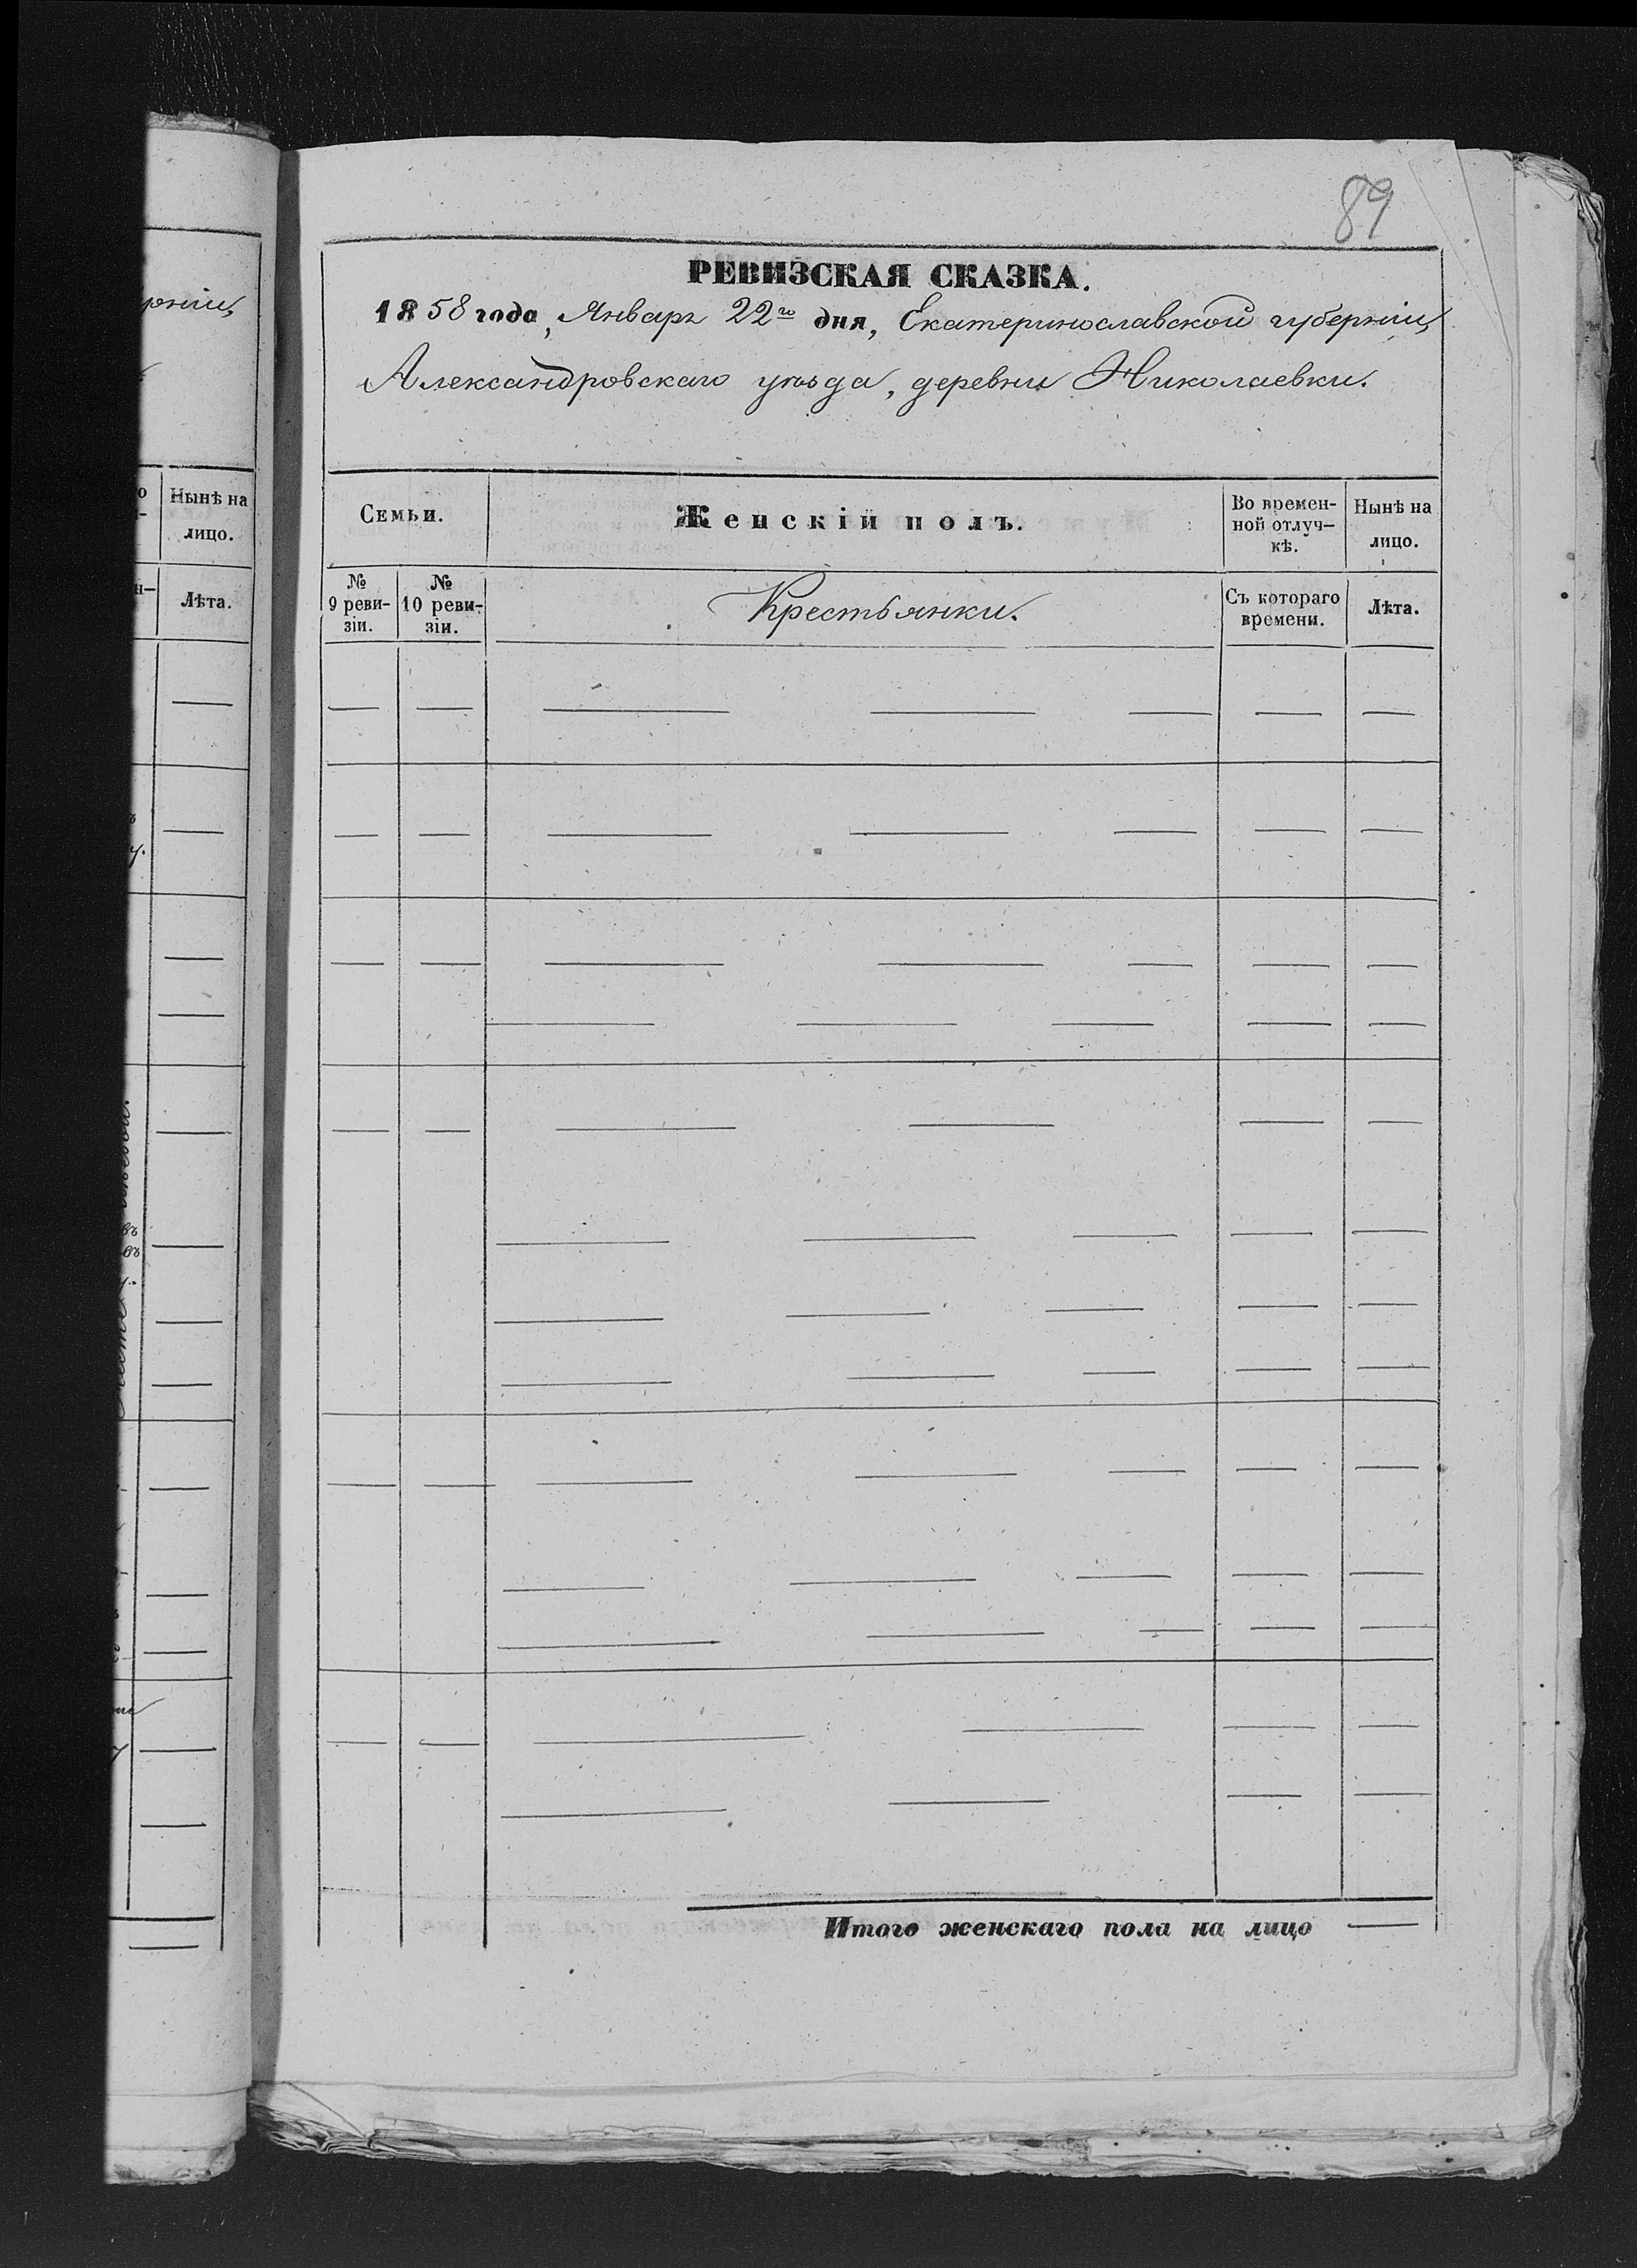 89
РЕВИЗСКАЯ СКАЗКА.
1858 года, Январь 22го дня, Екатеринославской губернiи,
Александровскаго уѣзда, деревни Николаевки.
Нынѣ на
лицо.
Лѣта.
Семьи.
Женскій полъ.
Во времен-
ной отлуч-
кѣ.
Нынѣ на
лицо.
№
9 реви-
зіи.
№
10 реви-
зіи.
Крестьянки.
Съ котораго
времени.
Лѣта.
Итого женскаго пола на лицо